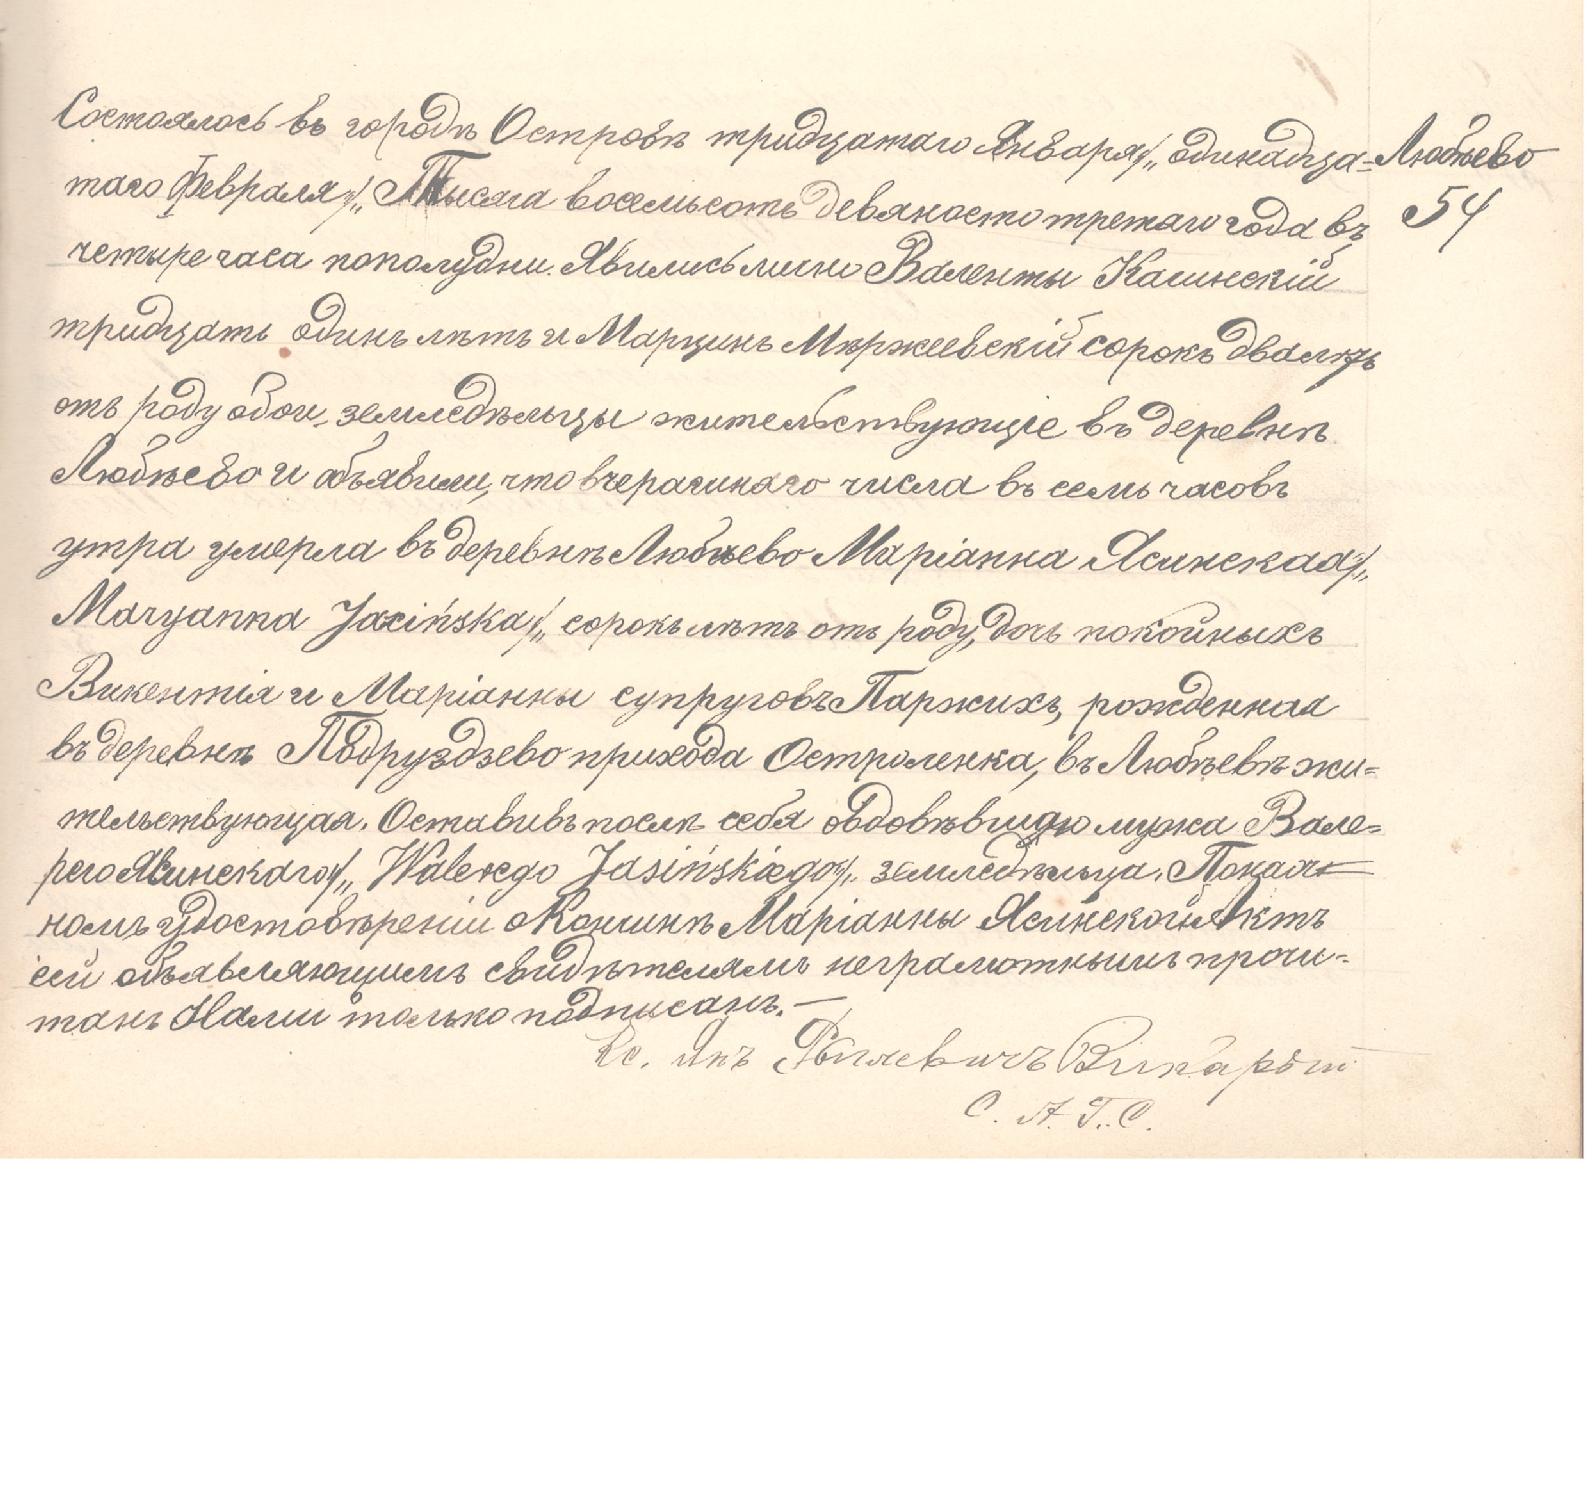 Состоялось въ городѣ Островѣ тридцатаго Января/„ одинадца=
Любѣево
54
таго Февраля/„ Тысяча восемьсотъ девяносто третаго года въ
четыре часа пополудни. Явились лично Валенты Кашинскій
тридцать одинъ лѣтъ и Марцинъ Мѣржеевскій сорокъ два лѣтъ
отъ роду обои, земледѣльцы жительствующіе въ деревнѣ
Любѣево и объявили, что вчерашняго числа въ семь часовъ
утра умерла въ деревнѣ Любѣево Маріанна Ясинская/„
Maryanna Jasińska/„ сорокъ лѣтъ отъ роду, дочь покойныхъ
Викентія и Маріанны супруговъ Паржихъ, рожденная
въ деревнѣ Подруздзево прихода Остроленка, въ Любѣевѣ жи=
тельствующая. Оставивъ послѣ себя овдовѣвшую мужа Вале=
рего Ясинскаго/„ Walerego Jasińskiego/„ земледѣльца. По
номъ удостовѣреніи о Кончинѣ Маріанны Ясинской Актъ
сей объявляющимъ свидѣтелямъ неграмотнымъ прочи=
танъ Нами только подписанъ.—
Кс. Янъ Викарый
С. А. Г. С.